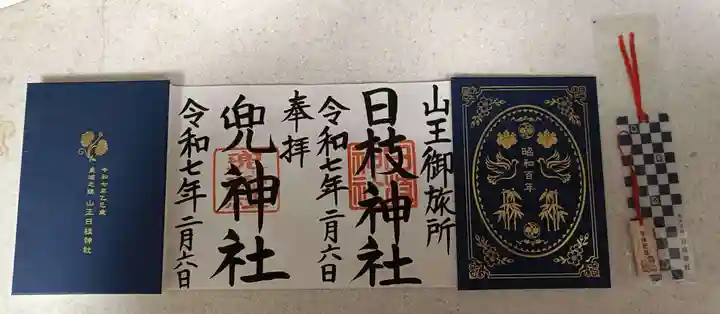 山王御旅所
日枝神社
令和七年二月六日
奉拝
兜神社
令和七年二月六日
昭和百年
令和七年乙巳歳
皇城之鎮 山王日枝神社